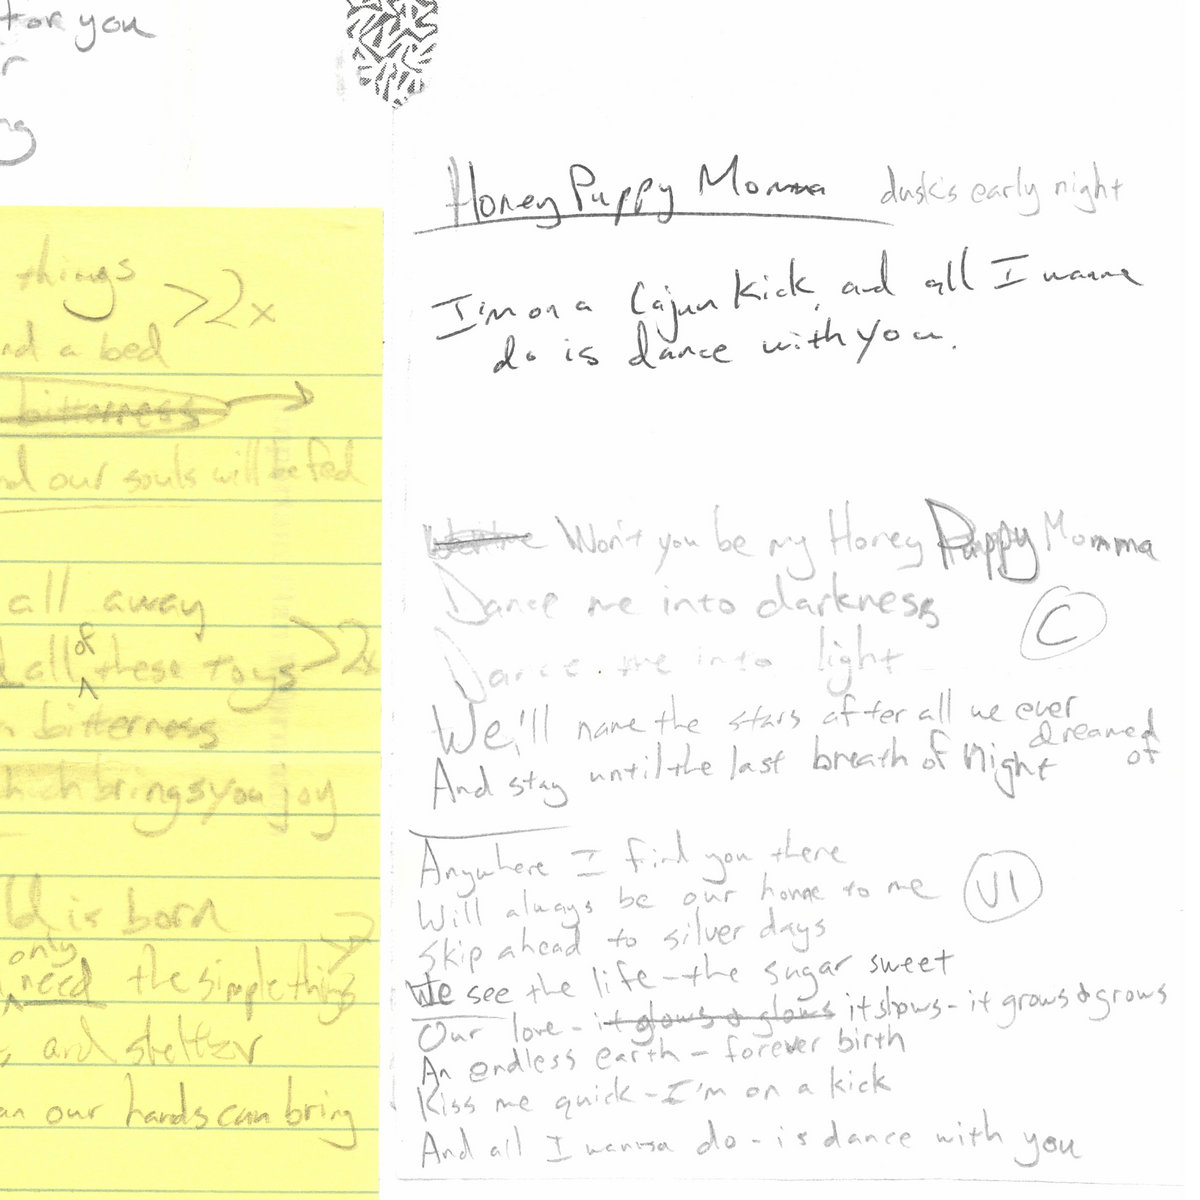 for you
r
ng
things >2x
nd a bed
bitterness
nd our souls will be fed
all away
all of these toys >2x
bitterness
which brings you joy
ld is born
only
need the simple things
and shelter
an our hands can bring
Honey Puppy Momma dusk's early night
I'm on a Cajun Kick, and all I wanna
do is dance with you.
Won't you be my Honey Puppy Momma
Dance me into darkness
C
Dance me into light
We'll name the stars after all we ever dreamed of
And stay until the last breath of Night
Anywhere I find you there
Will always be our home to me
V1
Skip ahead to silver days
We see the life - the sugar sweet
Our love - it glows & glows it shows - it grows & grows
An endless earth - forever birth
Kiss me quick - I'm on a kick
And all I wanna do - is dance with you